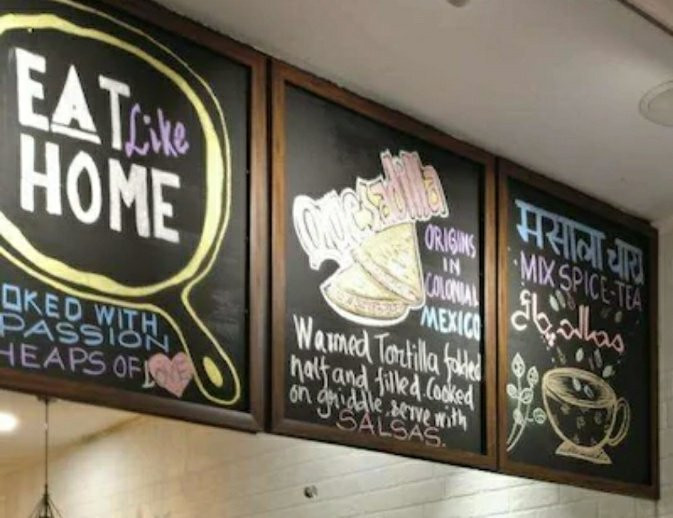 EAT Like
HOME
OKED WITH
PASSION
HEAPS OF LOVE
Quesadilla
ORIGINS
IN
COLONIAL
MEXICO
Warmed Tortilla folded
half and filled. Cooked
on griddle, serve with
SALSAS.
मसाला चाय
MIX SPICE-TEA